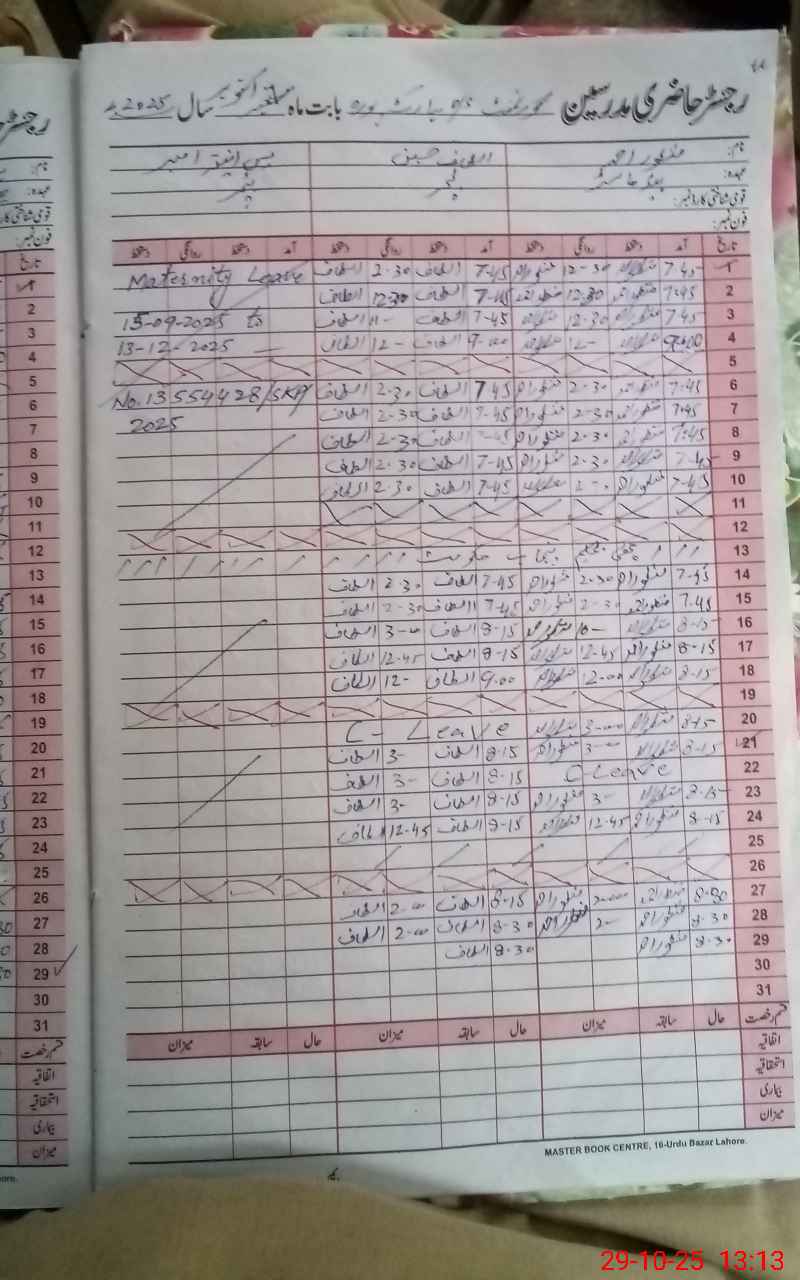 رجسٹر حاضری مدرسین گورنمنٹ بابت ماہ ستمبر اکتوبر سال 2025ء
نام: منظور احمد الطاف حسین
عہدہ: ہیڈ ماسٹر ٹیچر ٹیچر
قومی شناختی کارڈ نمبر:
فون نمبر:
تاریخ آمد دستخط روانگی دستخط آمد دستخط روانگی دستخط آمد دستخط روانگی دستخط
1 7-45 منظور احمد 12-30 منظور احمد 7-45 الطاف 2-30 الطاف Maternity Leave
2 7-45 منظور احمد 12-30 منظور احمد 7-45 الطاف 12-30 الطاف
3 7-45 منظور احمد 12-30 منظور احمد 7-45 الطاف 11- الطاف 15-09-2025 to
4 9-00 منظور احمد 12- منظور احمد 9-00 الطاف 12- الطاف 13-12-2025
5
6 7-45 منظور احمد 2-30 منظور احمد 7-45 الطاف 2-30 الطاف No.13554428/SKP/
7 7-45 منظور احمد 2-30 منظور احمد 7-45 الطاف 2-30 الطاف 2025
8 7-45 منظور احمد 2-30 منظور احمد 7-45 الطاف 2-30 الطاف
9 7-45 منظور احمد 2-30 منظور احمد 7-45 الطاف 2-30 الطاف
10 7-45 منظور احمد منظور احمد 7-45 الطاف 2-30 الطاف
11
12
13 چھٹی بحکم پنجاب حکومت
14 7-45 منظور احمد 2-30 منظور احمد 7-45 الطاف 2-30 الطاف
15 7-45 منظور احمد 2-30 منظور احمد 7-45 الطاف 2-30 الطاف
16 8-15 منظور احمد 10- منظور احمد 8-15 الطاف 3-00 الطاف
17 8-15 منظور احمد 12-45 منظور احمد 8-15 الطاف 12-45 الطاف
18 8-15 منظور احمد 12-00 منظور احمد 9-00 الطاف 12- الطاف
19
20 8-15 منظور احمد 3-00 منظور احمد C-Leave
21 8-15 منظور احمد 3-00 منظور احمد 8-15 الطاف 3- الطاف
22 C-Leave 8-15 الطاف 3- الطاف
23 8-15 منظور احمد 3- منظور احمد 8-15 الطاف 3- الطاف
24 8-15 منظور احمد 12-45 منظور احمد 8-15 الطاف 12-45 الطاف
25
26
27 8-30 منظور احمد 2-00 منظور احمد 8-15 الطاف 2-00 الطاف
28 8-30 منظور احمد 2- منظور احمد 8-30 الطاف 2-00 الطاف
29 8-30 منظور احمد 8-30 الطاف
30
31
قسم رخصت حال سابقہ میزان حال سابقہ میزان حال سابقہ میزان
اتفاقیہ
استحقاقیہ
بیماری
میزان
MASTER BOOK CENTRE, 16-Urdu Bazar Lahore.
رجسٹر
نام:
عہدہ:
قومی شناختی کارڈ
فون نمبر:
تاریخ
1
2
3
4
5
6
7
8
9
10
11
12
13
14
15
16
17
18
19
20
21
22
23
24
25
26
27
28
29
30
31
قسم رخصت
اتفاقیہ
استحقاقیہ
بیماری
میزان
ore.
29-10-25 13:13